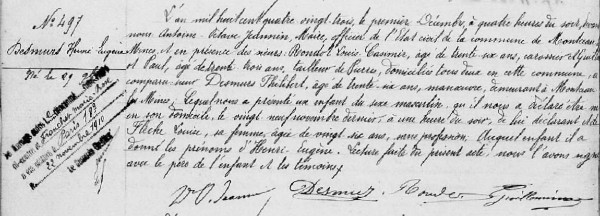 No 497
Desmurs Henri Eugène
Né le 29 9bre
L'an mil huit cent quatre vingt trois, le premier Décembre, à quatre heures du soir, devant
nous Antoine Octave Jeannin, Maire, officier de l'Etat civil de la commune de Montceau-
Mines, et en présence des sieurs Louis Casimir, âgé de trente six ans, et
Paul, âgé de trente trois ans, tailleur de Pierres, domiciliés tous deux en cette commune, a
comparu sieur Desmurs Philibert, âgé de trente six ans, manœuvre, demeurant à Montceau
les Mines. Lequel nous a présenté un enfant du sexe masculin, qu'il nous a déclaré être né
en son domicile, le vingt neuf novembre dernier à une heure du soir, de lui déclarant et de
Flèche Louise, sa femme, âgée de vingt six ans, sans profession. Auquel enfant il a
donné les prénoms d'Henri-Eugène. Lecture faite du présent acte, nous l'avons signé
avec le père de l'enfant et les témoins.
Dr O. Jeannin Desmurs
à Paris
22 novembre 1910